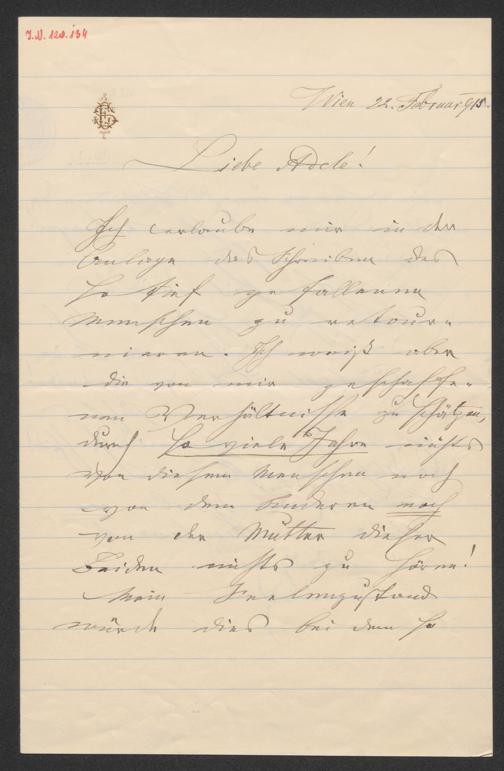 J.N. 120.134
Wien 22. Februar 915.
Liebe Adele!
Ich erlaube mir in der
Anlage das Schreiben des
so tief gefallenen
Menschen zu retour-
nieren. Ich weiß aber
die von mir geschaffe-
nen Verhältnisse zu schätzen,
durch so viele Jahre nichts
von diesem Menschen noch
von dem Anderen noch
von der Mutter dieser
Beiden nichts zu hören!
Mein Seelenzustand
würde dies bei dem so